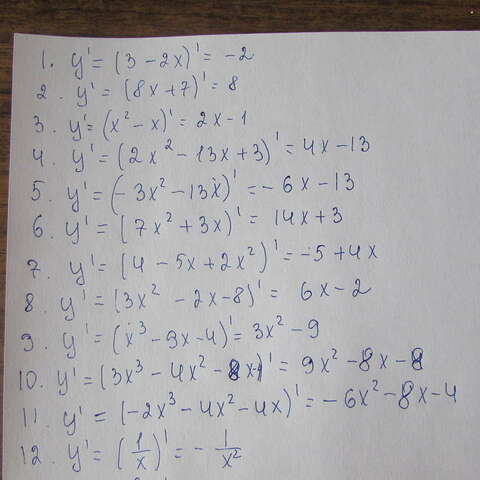 1. y' = (3 - 2x)' = -2
2. y' = (8x + 7)' = 8
3. y' = (x² - x)' = 2x - 1
4. y' = (2x² - 13x + 3)' = 4x - 13
5. y' = (-3x² - 13x)' = -6x - 13
6. y' = (7x² + 3x)' = 14x + 3
7. y' = (4 - 5x + 2x²)' = -5 + 4x
8. y' = (3x² - 2x - 8)' = 6x - 2
9. y' = (x³ - 9x - 4)' = 3x² - 9
10. y' = (3x³ - 4x² - 8x)' = 9x² - 8x - 8
11. y' = (-2x³ - 4x² - 4x)' = -6x² - 8x - 4
12. y' = (1/x)' = - 1/x²